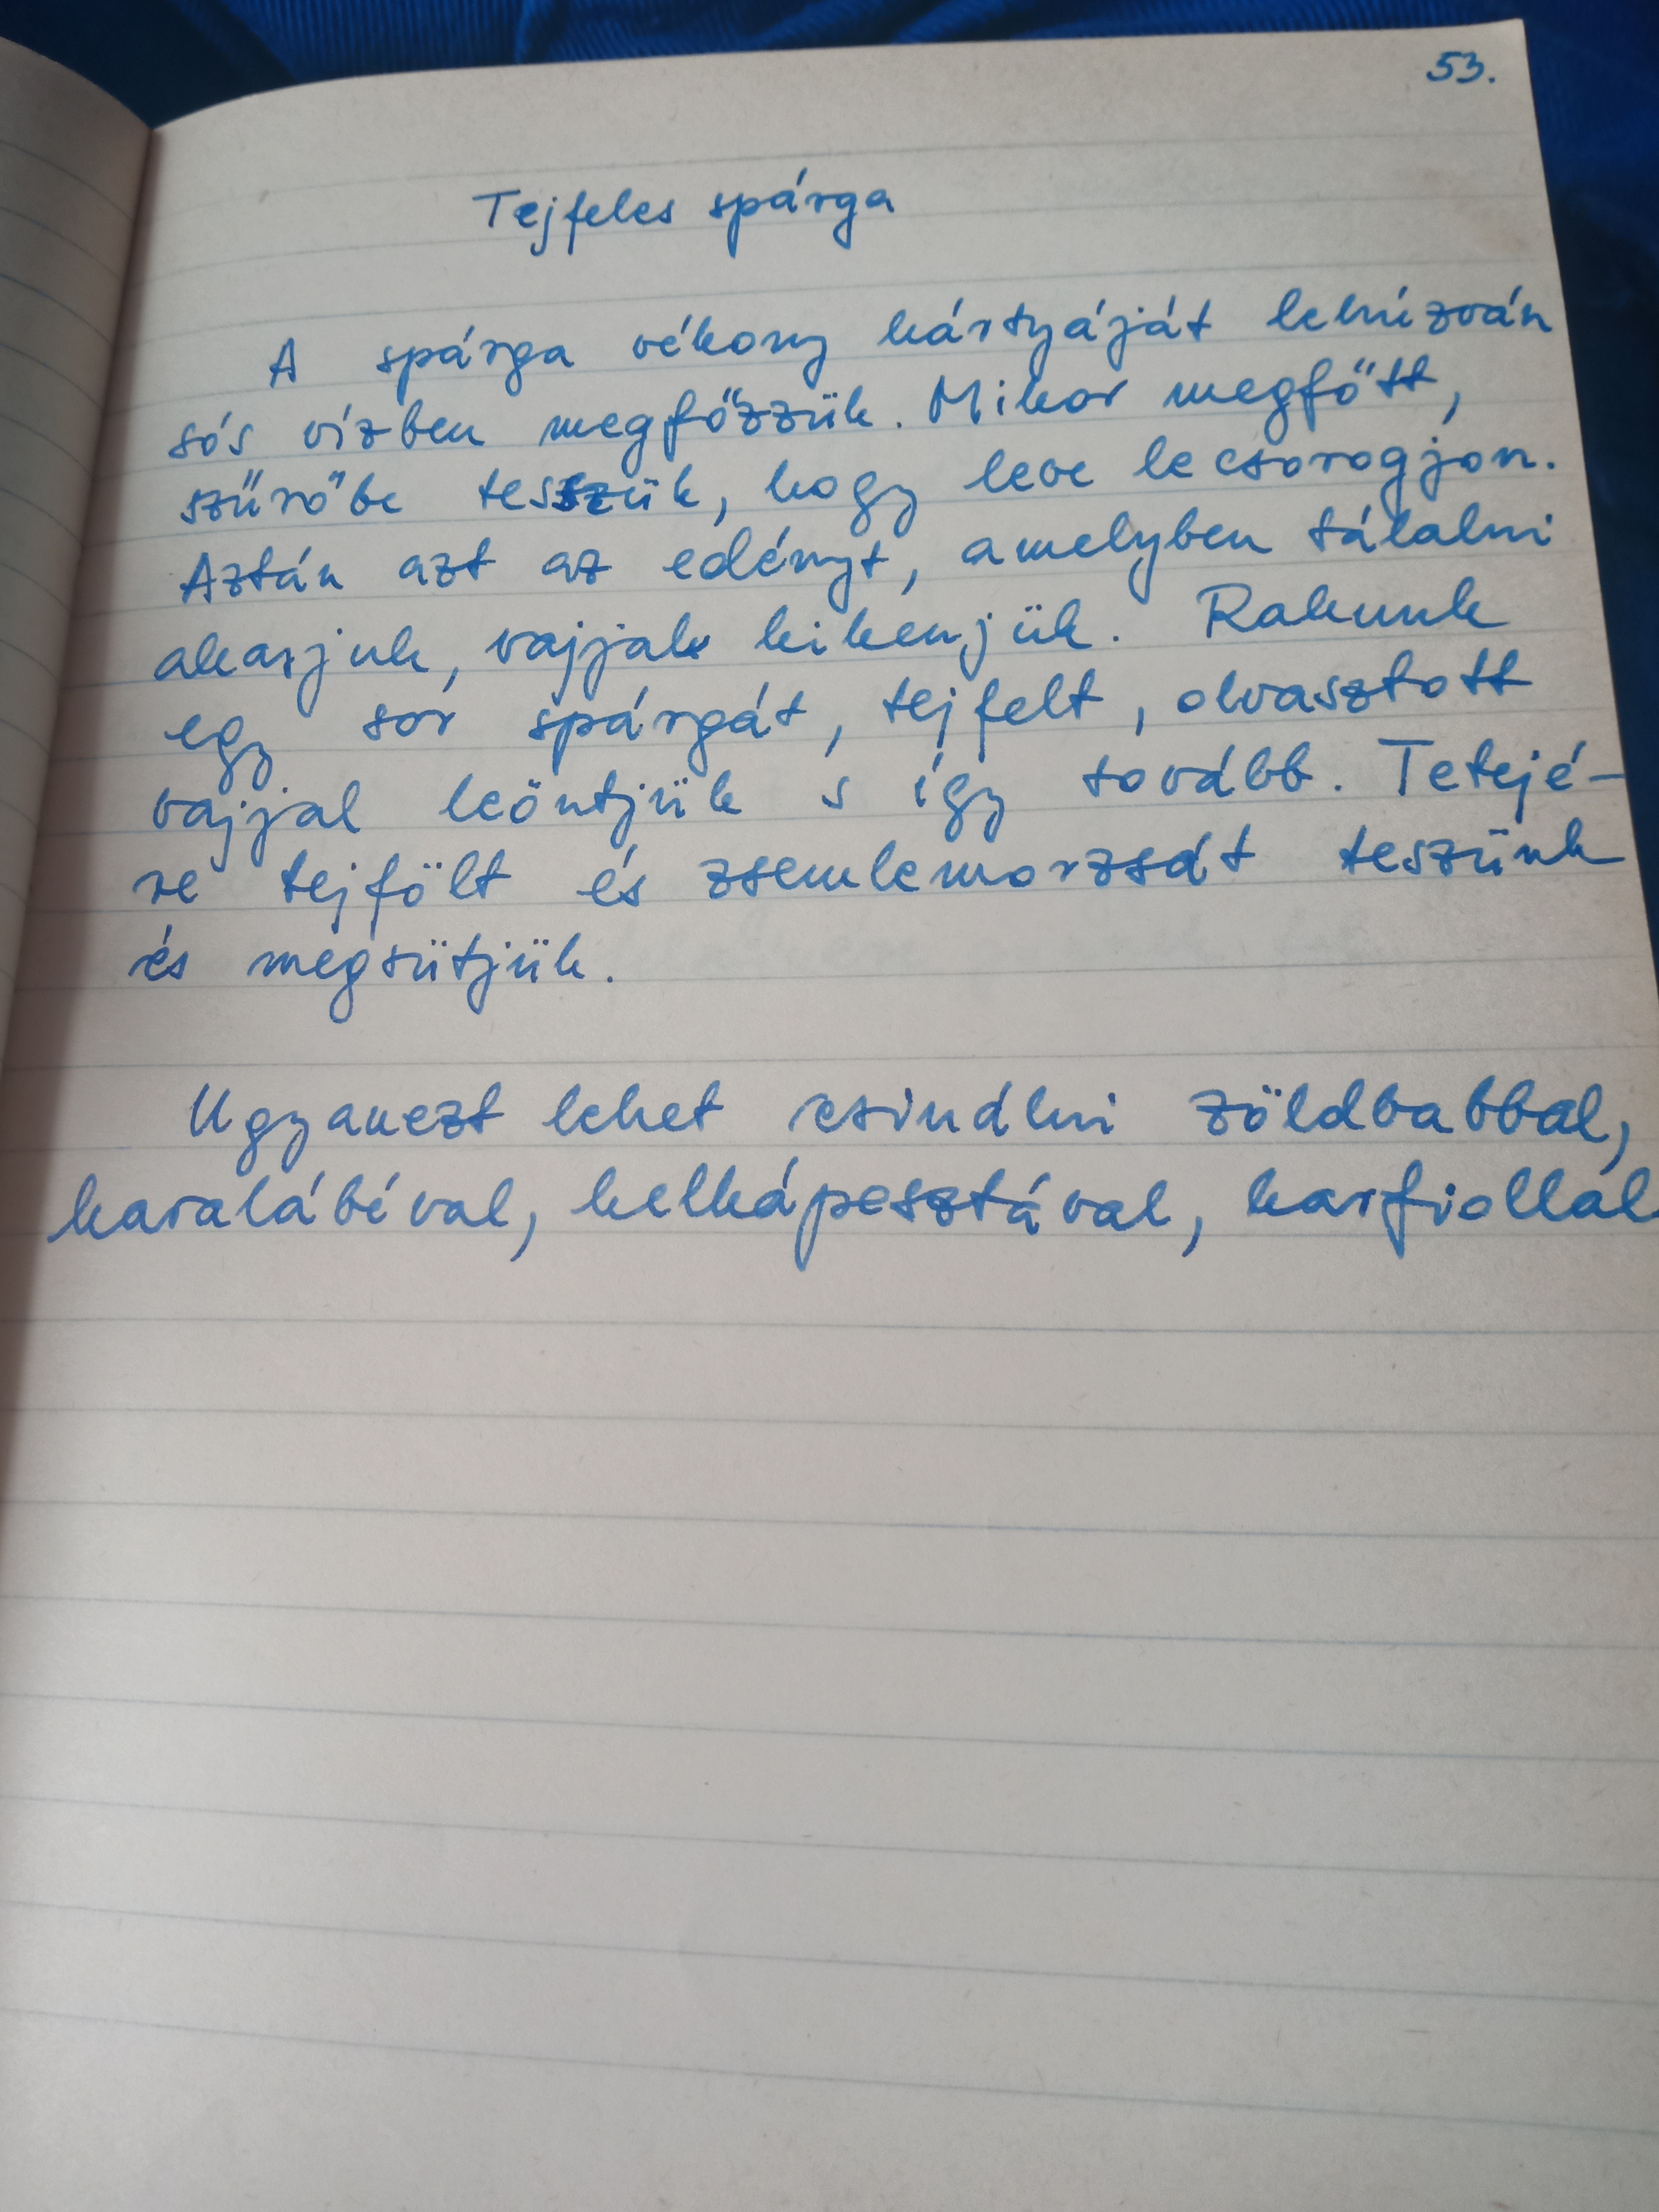 53.
Tejfeles spárga
A spárga vékony hártyáját lehúzván
sós vízben megfőzzük. Mikor megfőtt,
szűrőbe tesszük, hogy leve lecsorogjon.
Aztán azt az edényt, amelyben tálalni
akarjuk, vajjal kikenjük. Rakunk
egy sor spárgát, tejfelt, olvasztott
vajjal leöntjük s így tovább. Tetejé-
re tejfölt és zsemlemorzsát teszünk
és megsütjük.
Ugyanezt lehet csinálni zöldbabbal,
karalábéval, kelkáposztával, karfiollal